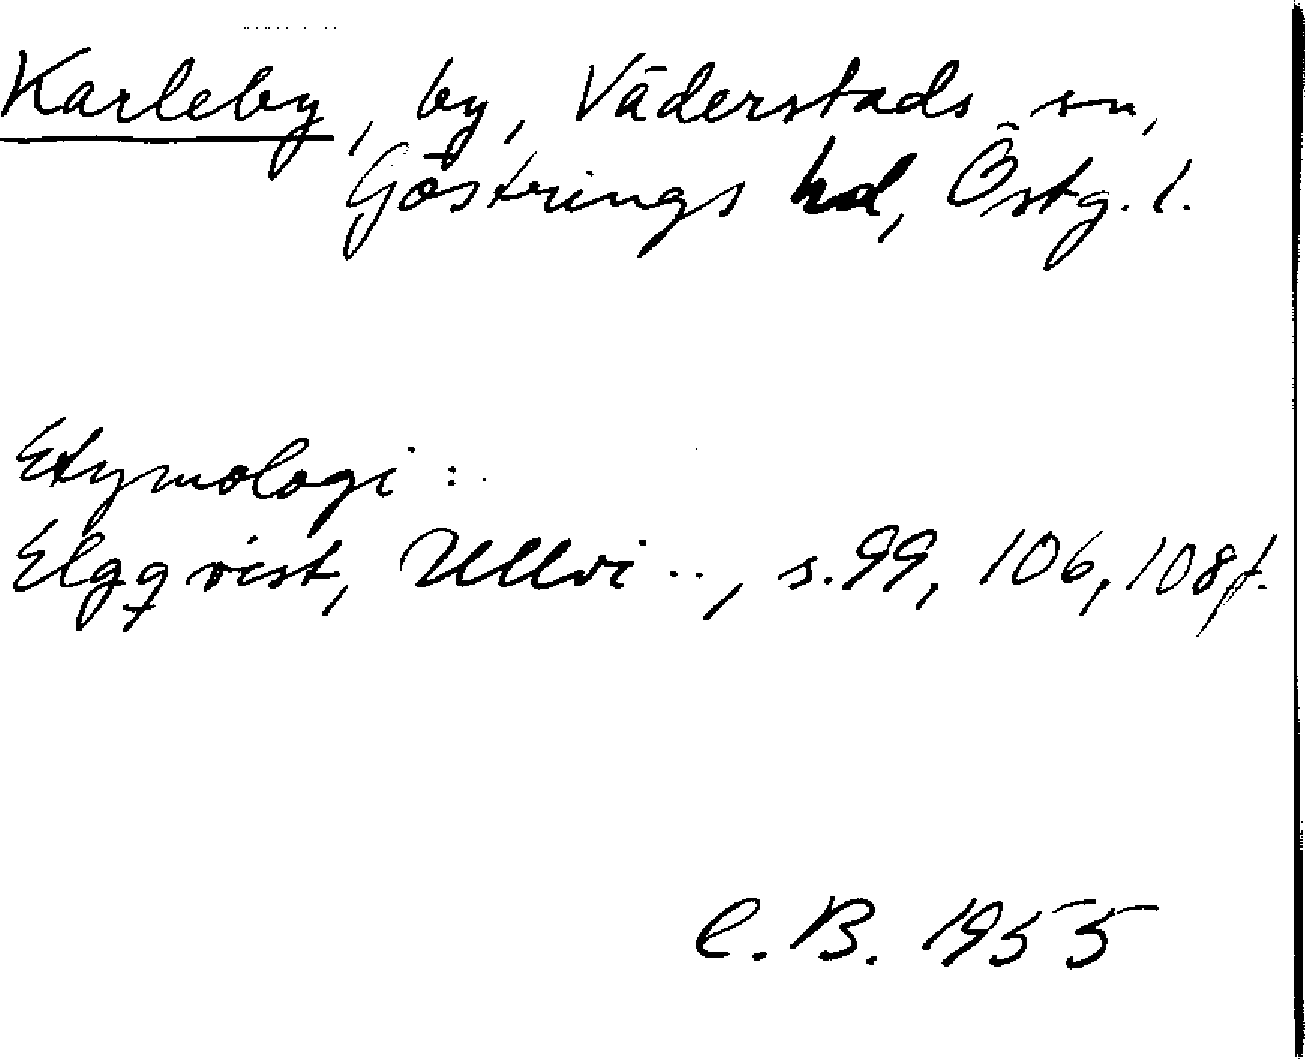 Karleby, by, Väderstads sn,
Göstrings hd, Östg. l.
Etymologi:
Elgqvist, Ullvi .., s. 99, 106, 108f.
C. B. 1955